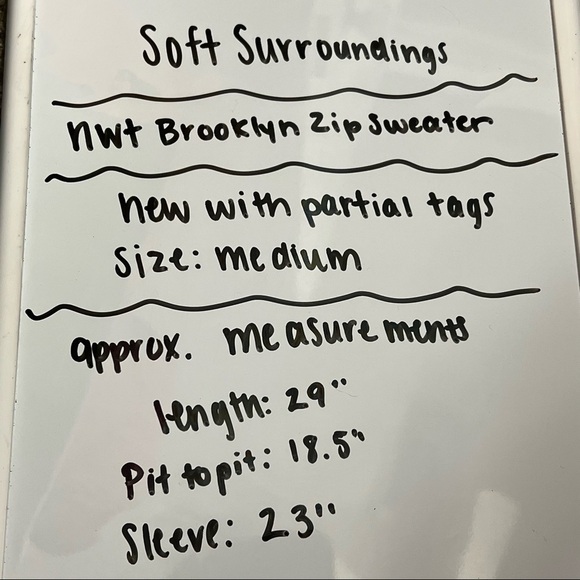 Soft Surroundings
nwt Brooklyn Zip Sweater
new with partial tags
Size: medium
approx. measurements
length: 29"
Pit to pit: 18.5"
Sleeve: 23"